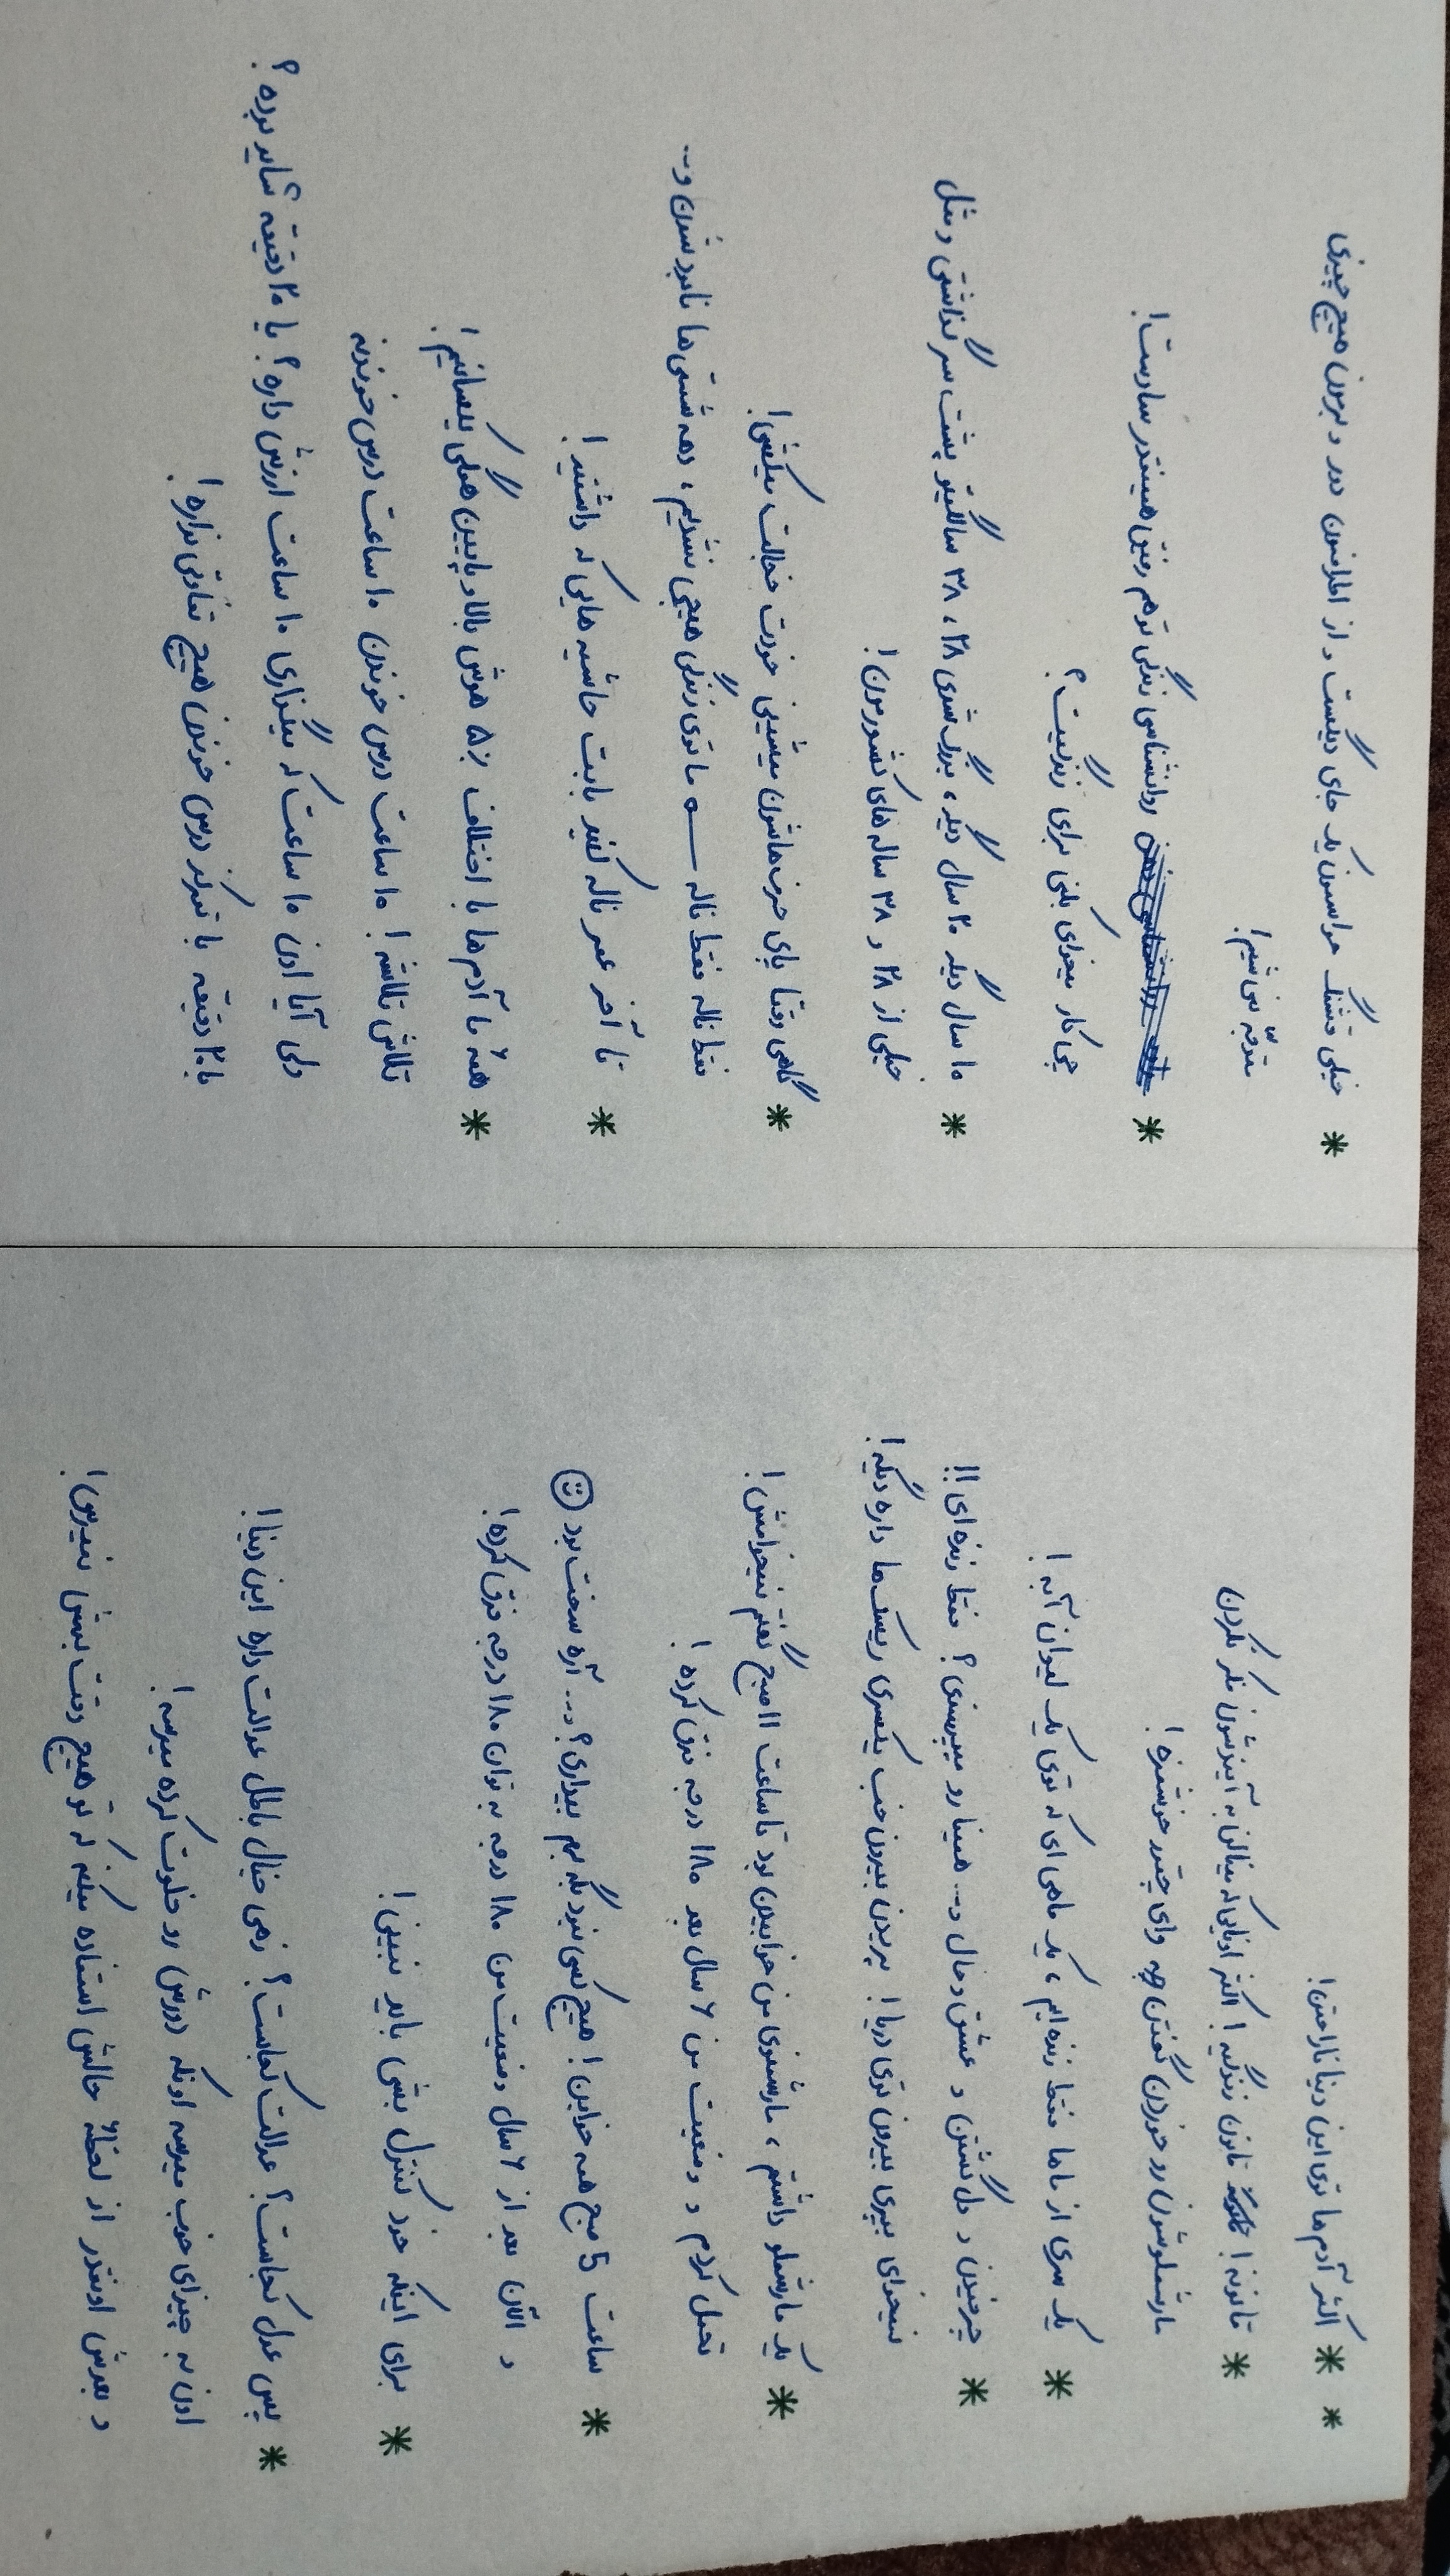 * * اکثر آدم ها توی این دنیا ناراحتن!
* قانونه! قانون زندگیه! اکثر اونایی که مینالن به آیندشون فکر نکردن
مارشملوشون رو خوردن گفتن به وای چقدر خوشمزه!
* یک سری از ماها فقط زنده ایم، یک ماهی ای که توی یک لیوان آبه!
* چرخیدن و ول گشتن و عشق و حال و... همینا رو میپرستی؟ فقط زنده ای!!
نمیخوای بپری بیرون توی دریا! پریدن بیرون خب یکسری ریسک ها داره دیگه!
* یک مارشملو داشتم، مارشملوی من خوابیدن بود تا ساعت ۱۱ صبح گفتم نمیخوامش!
تحمل کردم و وضعیت من ۶ سال بعد ۱۸۰ درجه فرق کرده!
* ساعت 5 صبح همه خوابن! هیچ کسی نبود بگه بهم بیداری؟ و... آره سخت بود ☺
و الآن بعد از ۶ سال وضعیت من ۱۸۰ درجه به توان ۱۸۰ درجه فرق کرده!
* برای اینکه خود کنترل بشی باید نبینی!
* پس عدل کجاست؟ عدالت کجاست؟ زهی خیال باطل عدالت داره این دنیا!
اون به چیزای خوب میرسه اونکه دورش رو خلوت کرده میرسه!
و بعدش اونقدر از لحظهٔ حالش استفاده میکنه که تو هیچ وقت بهش نمیرسی!
* خیلی قشنگ حواسمون یک جای دیگست و از اطرافمون دور و برمون هیچ چیزی
متوجّه نمی شیم!
* روانشناسی زندگی تو هم رفیق همینقدر سادست!
چی کار میخوای بکنی برای زندگیت؟
* ۱۰ سال دیگه ۲۰ سال دیگه، بزرگ شدی ۲۸، ۳۸ سالگیتو پشت سر گذاشتی و مثل
خیلی از ۲۸ و ۳۸ ساله های کشورمون!
* گاهی وقتا پای حرف هاشون میشینی خودت خجالت میکشی!
فقط ناله فقط ناله ما توی زندگی هیچی نشدیم، دهه شصتی ها نابود شدن و...
* تا آخر عمر ناله کنید بابت حاشیه هایی که داشتید!
* همهٔ ما آدم ها با اختلاف ۵٪ هوش بالا و پایین همگی یکسانیم!
تلاش تلاشه! ۱۰ ساعت درس خوندن ۱۰ ساعت درس خوندنه
ولی آیا اون ۱۰ ساعت که میگذاری ۱۰ ساعت ارزش داره؟ یا ۲۰ دقیقه شاید بوده؟
با ۲۰ دقیقه با تمرکز درس خوندن هیچ تفاوتی نداره!